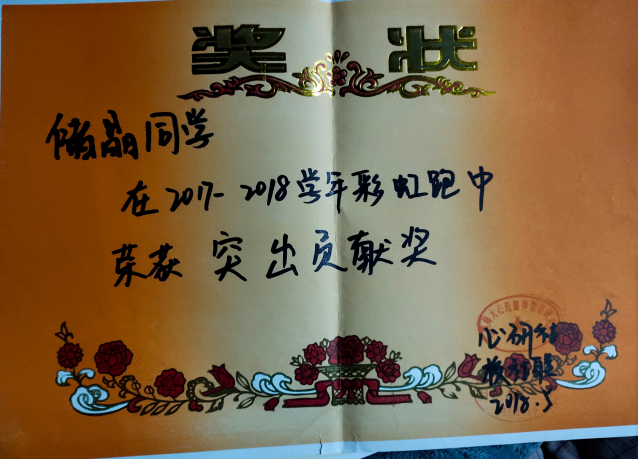 奖状
储晶同学
在2017-2018学年彩虹跑中
荣获 突出贡献奖
心研结
2018.5